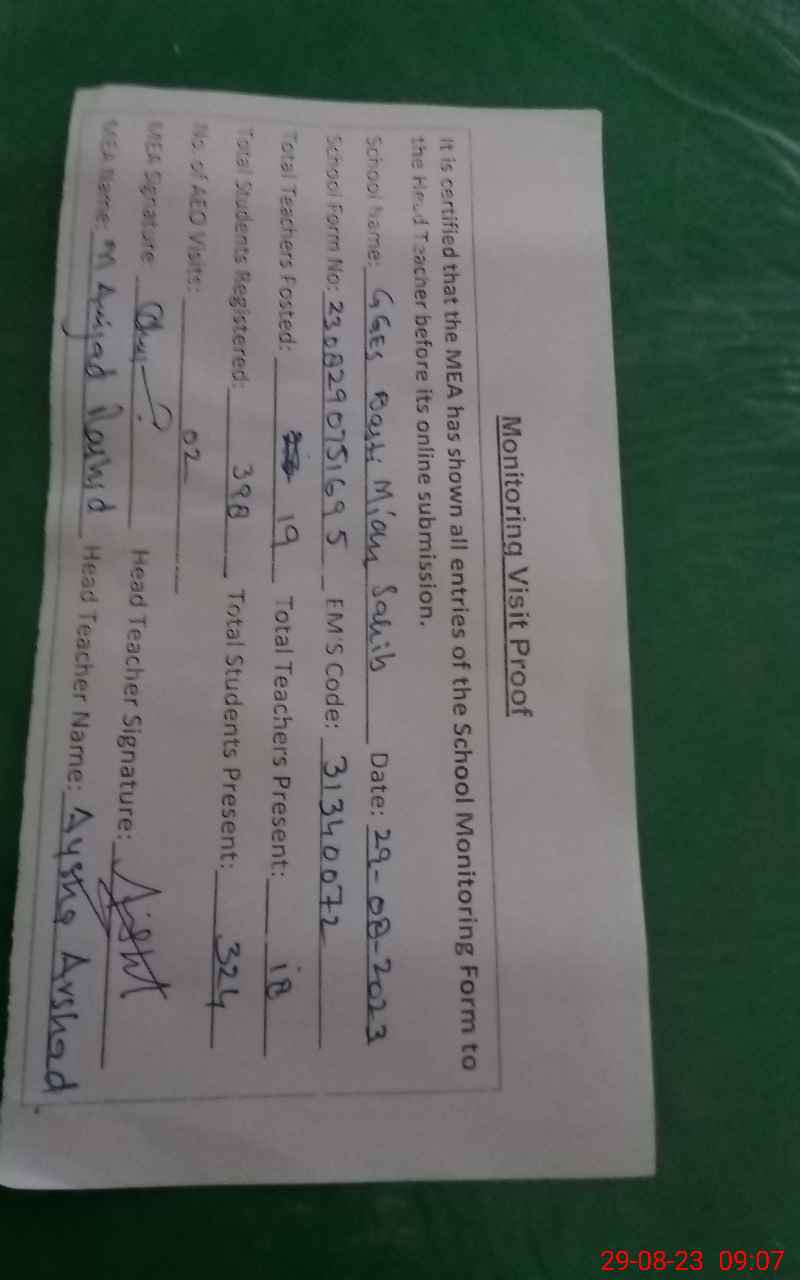 Monitoring Visit Proof
It is certified that the MEA has shown all entries of the School Monitoring Form to
the Head Teacher before its online submission.
School Name: GGES Basti Mian Sahib Date: 29-08-2023
School Form No: 2308290751695 EM'S Code: 31340072
Total Teachers Posted: 19 Total Teachers Present: 18
Total Students Registered: 398 Total Students Present: 324
No. of AEO Visits: 02
MEA Signature Head Teacher Signature:
MEA Name: M Amjad Rashid Head Teacher Name: Aysha Arshad
29-08-23 09:07